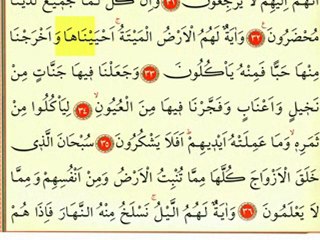 اَنَّهُمْ اِلَيْهِمْ لَا يَرْجِعُونَ ﴿٣١﴾ وَاِنْ كُلٌّ لَمَّا جَم۪يعٌ لَدَيْنَا
مُحْضَرُونَ ﴿٣٢﴾ وَاٰيَةٌ لَهُمُ الْاَرْضُ الْمَيْتَةُۚ اَحْيَيْنَاهَا وَاَخْرَجْنَا
مِنْهَا حَبًّا فَمِنْهُ يَأْكُلُونَ ﴿٣٣﴾ وَجَعَلْنَا ف۪يهَا جَنَّاتٍ مِنْ
نَخ۪يلٍ وَاَعْنَابٍ وَفَجَّرْنَا ف۪يهَا مِنَ الْعُيُونِۙ ﴿٣٤﴾ لِيَأْكُلُوا مِنْ
ثَمَرِه۪ۙ وَمَا عَمِلَتْهُ اَيْد۪يهِمْۜ اَفَلَا يَشْكُرُونَ ﴿٣٥﴾ سُبْحَانَ الَّذ۪ي
خَلَقَ الْاَزْوَاجَ كُلَّهَا مِمَّا تُنْبِتُ الْاَرْضُ وَمِنْ اَنْفُسِهِمْ وَمِمَّا
لَا يَعْلَمُونَ ﴿٣٦﴾ وَاٰيَةٌ لَهُمُ الَّيْلُۚ نَسْلَخُ مِنْهُ النَّهَارَ فَاِذَا هُمْ